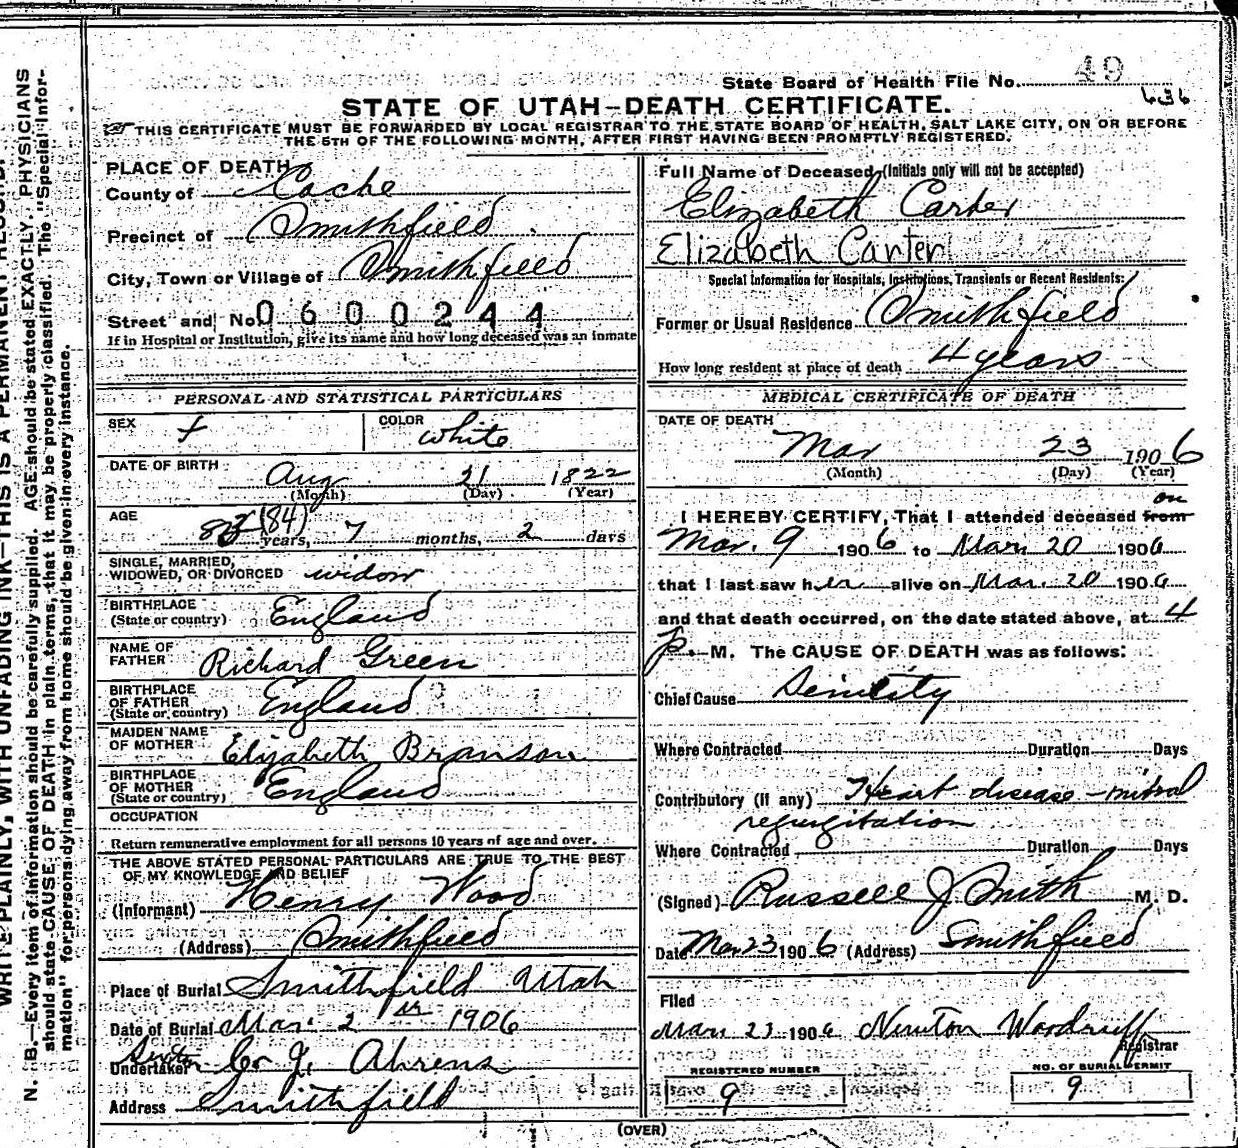 State Board of Health File No. 49
636
STATE OF UTAH—DEATH CERTIFICATE.
THIS CERTIFICATE MUST BE FORWARDED BY LOCAL REGISTRAR TO THE STATE BOARD OF HEALTH, SALT LAKE CITY, ON OR BEFORE
THE 5TH OF THE FOLLOWING MONTH, AFTER FIRST HAVING BEEN PROMPTLY REGISTERED.
PLACE OF DEATH
County of Cache
Precinct of Smithfield
City, Town or Village of Smithfield
Street and No. 0600244
If in Hospital or Institution, give its name and how long deceased was an inmate
PERSONAL AND STATISTICAL PARTICULARS
SEX f COLOR white
DATE OF BIRTH Aug 21 1822
(Month) (Day) (Year)
AGE 83 (84) years, 7 months, 2 days
SINGLE, MARRIED,
WIDOWED, OR DIVORCED widow
BIRTHPLACE
(State or country) England
NAME OF
FATHER Richard Green
BIRTHPLACE
OF FATHER
(State or country) England
MAIDEN NAME
OF MOTHER Elizabeth Branson
BIRTHPLACE
OF MOTHER
(State or country) England
OCCUPATION
Return remunerative employment for all persons 10 years of age and over.
THE ABOVE STATED PERSONAL PARTICULARS ARE TRUE TO THE BEST
OF MY KNOWLEDGE AND BELIEF
(Informant) Henry Wood
(Address) Smithfield
Place of Burial Smithfield Utah
Date of Burial Mar. 2 1906
Undertaker C. J. Ahrens
Address Smithfield
Full Name of Deceased (Initials only will not be accepted)
Elizabeth Carter
Elizabeth Carter
Special Information for Hospitals, Institutions, Transients or Recent Residents:
Former or Usual Residence Smithfield
How long resident at place of death 4 years
MEDICAL CERTIFICATE OF DEATH
DATE OF DEATH
Mar 23 1906
(Month) (Day) (Year)
on
I HEREBY CERTIFY, That I attended deceased from
Mar. 9 1906 to Mar. 20 1906
that I last saw her alive on Mar. 20 1906
and that death occurred, on the date stated above, at 4
p. M. The CAUSE OF DEATH was as follows:
Chief Cause Senility
Where Contracted Duration Days
Contributory (if any) Heart disease - mitral
regurgitation
Where Contracted Duration Days
(Signed) Russell J Smith M. D.
Date Mar 23 1906 (Address) Smithfield
Filed
Mar. 23 1906 Newton Woodruff
Registrar
REGISTERED NUMBER
9
NO. OF BURIAL PERMIT
9
(OVER)
WRITE PLAINLY, WITH UNFADING INK—THIS IS A PERMANENT RECORD.
N. B.—Every item of information should be carefully supplied. AGE should be stated EXACTLY. PHYSICIANS
should state CAUSE OF DEATH in plain terms, that it may be properly classified. The "Special Infor-
mation" for persons dying away from home should be given in every instance.